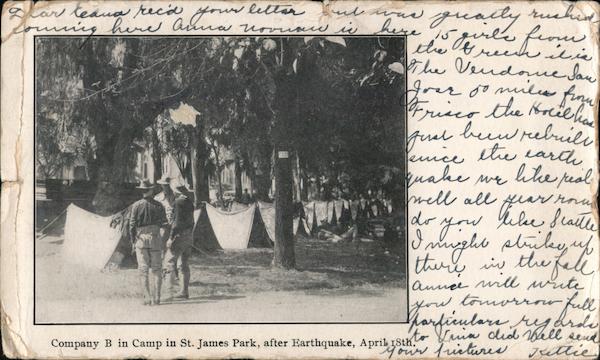 Dear Leana rec'd your letter but was greatly rushed
coming here Anna Norman is here 15 girls from
the Green it is
The Vendome San
Jose 50 miles from
Frisco the Hotel has
just been rebuilt
since the earth
quake we like real
well all year round
do you like Seattle
I might strike up
there in the fall
Anna will write
you tomorrow full
particulars regards
to Tina did Will send
your pictures
Company B in Camp in St. James Park, after Earthquake, April 18th.